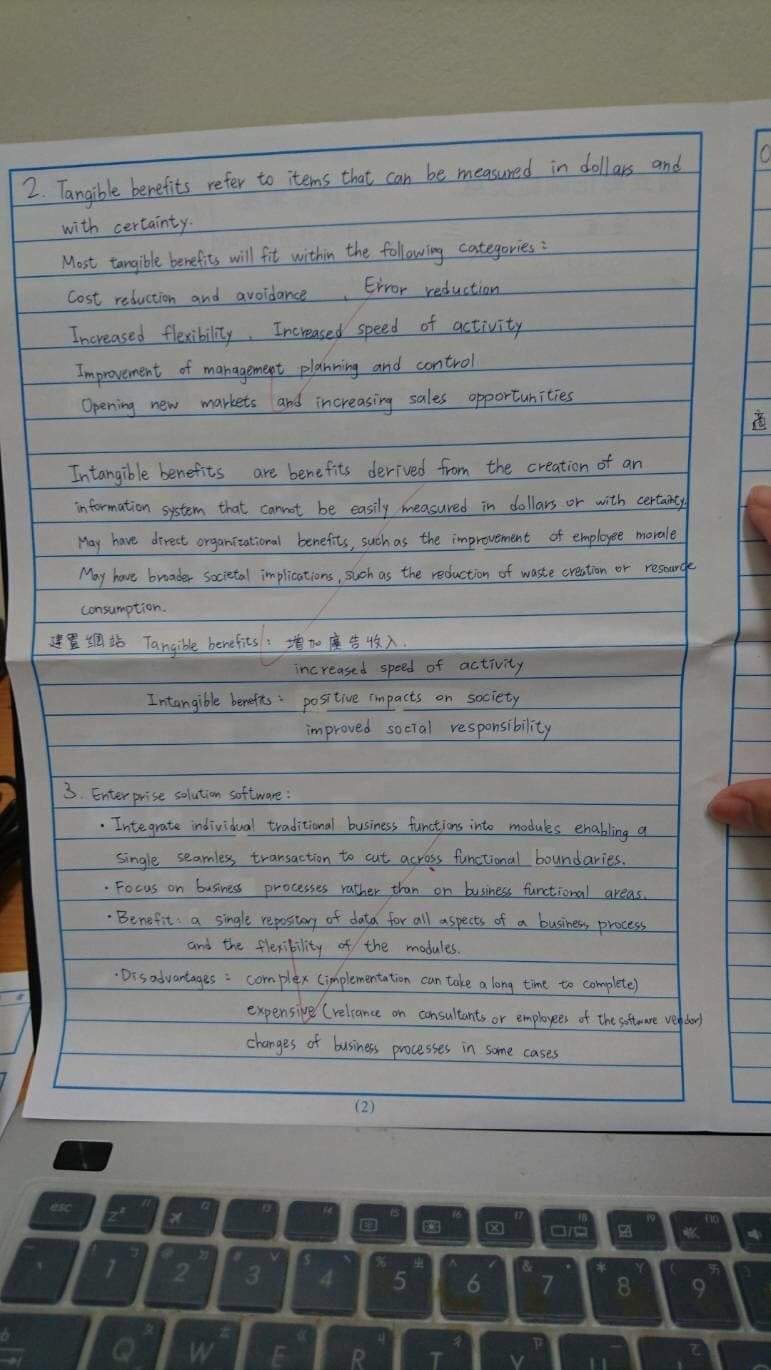 2. Tangible benefits refer to items that can be measured in dollars and
with certainty.
Most tangible benefits will fit within the following categories:
Cost reduction and avoidance 、 Error reduction
Increased flexibility 、 Increased speed of activity
Improvement of management planning and control
Opening new markets and increasing sales opportunities
Intangible benefits are benefits derived from the creation of an
information system that cannot be easily measured in dollars or with certainty.
May have direct organizational benefits, such as the improvement of employee morale
May have broader societal implications, such as the reduction of waste creation or resource
consumption.
建置網站 Tangible benefits: 增加廣告收入.
increased speed of activity
Intangible benefits: positive impacts on society
improved social responsibility
3. Enterprise solution software:
• Integrate individual traditional business functions into modules enabling a
single seamless transaction to cut across functional boundaries.
• Focus on business processes rather than on business functional areas.
• Benefit: a single repository of data for all aspects of a business process
and the flexibility of the modules.
• Disadvantages: complex (implementation can take a long time to complete)
expensive (reliance on consultants or employees of the software vendor)
changes of business processes in some cases
(2)
esc f1 f2 f3 f4 f5 f6 f7 f8 f9 f10
1 2 3 4 5 6 7 8 9
Q W E R T Y U